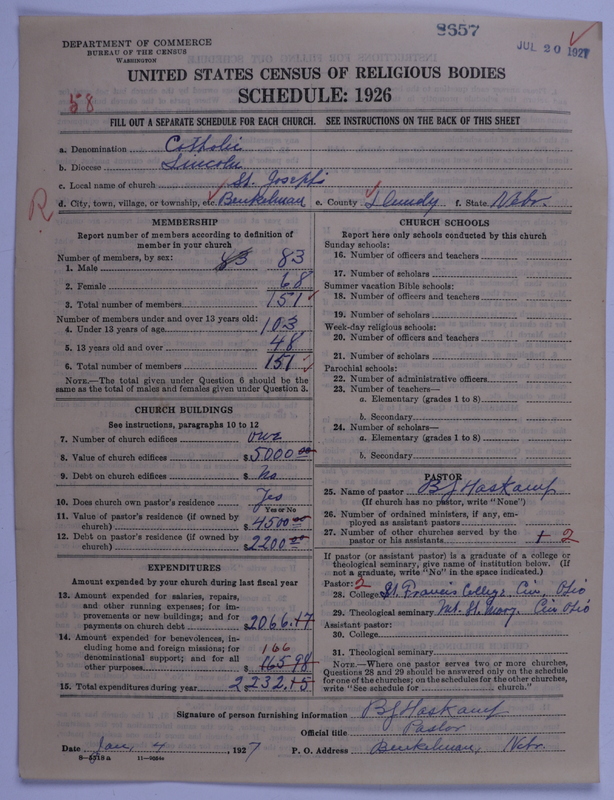 8657
JUL 20 1927
DEPARTMENT OF COMMERCE
BUREAU OF THE CENSUS
WASHINGTON
UNITED STATES CENSUS OF RELIGIOUS BODIES
SCHEDULE: 1926
58
FILL OUT A SEPARATE SCHEDULE FOR EACH CHURCH. SEE INSTRUCTIONS ON THE BACK OF THIS SHEET
a. Denomination Catholic
b. Diocese Lincoln
c. Local name of church St. Joseph's
R
d. City, town, village, or township, etc. Benkelman e. County Dundy f. State Nebr.
MEMBERSHIP
Report number of members according to definition of
member in your church
Number of members, by sex:
1. Male 83 83
2. Female 68
3. Total number of members 151
Number of members under and over 13 years old:
4. Under 13 years of age 103
5. 13 years old and over 48
6. Total number of members 151
NOTE.—The total given under Question 6 should be
same as the total of males and females given under Question 3.
CHURCH BUILDINGS
See instructions, paragraphs 10 to 12
7. Number of church edifices one
8. Value of church edifices $5000 00
9. Debt on church edifices $ No
10. Does church own pastor's residence Yes
Yes or No
11. Value of pastor's residence (if owned by
church) $4500 00
12. Debt on pastor's residence (if owned by
church) $2200 00
EXPENDITURES
Amount expended by your church during last fiscal year
13. Amount expended for salaries, repairs,
and other running expenses; for im-
provements or new buildings; and for
payments on church debt $2066.17
14. Amount expended for benevolences, in-
cluding home and foreign missions; for
denominational support; and for all
other purposes 166 $165 98
15. Total expenditures during year 2232.15
CHURCH SCHOOLS
Report here only schools conducted by this church
Sunday schools:
16. Number of officers and teachers
17. Number of scholars
Summer vacation Bible schools:
18. Number of officers and teachers
19. Number of scholars
Week-day religious schools:
20. Number of officers and teachers
21. Number of scholars
Parochial schools:
22. Number of administrative officers
23. Number of teachers—
a. Elementary (grades 1 to 8)
b. Secondary
24. Number of scholars—
a. Elementary (grades 1 to 8)
b. Secondary
PASTOR
25. Name of pastor B J Haskamp
(If church has no pastor, write "None")
26. Number of ordained ministers, if any, em-
ployed as assistant pastors
27. Number of other churches served by the
pastor or his assistants 2
If pastor (or assistant pastor) is a graduate of a college or
theological seminary, give name of institution below. (If
not a graduate, write "No" in the space indicated.)
Pastor: 2
28. College St. Francis College Cin, Ohio
29. Theological seminary Mt. St. Mary Cin Ohio
Assistant pastor:
30. College
31. Theological seminary
NOTE.—Where one pastor serves two or more churches,
Questions 28 and 29 should be answered only on the schedule
for one of the churches; on the schedules for the other churches,
write "See schedule for church."
Signature of person furnishing information B J Haskamp
Official title Pastor
Date Jan, 4, 1927 P. O. Address Benkelman, Nebr.
8-5318 a 11-9064a